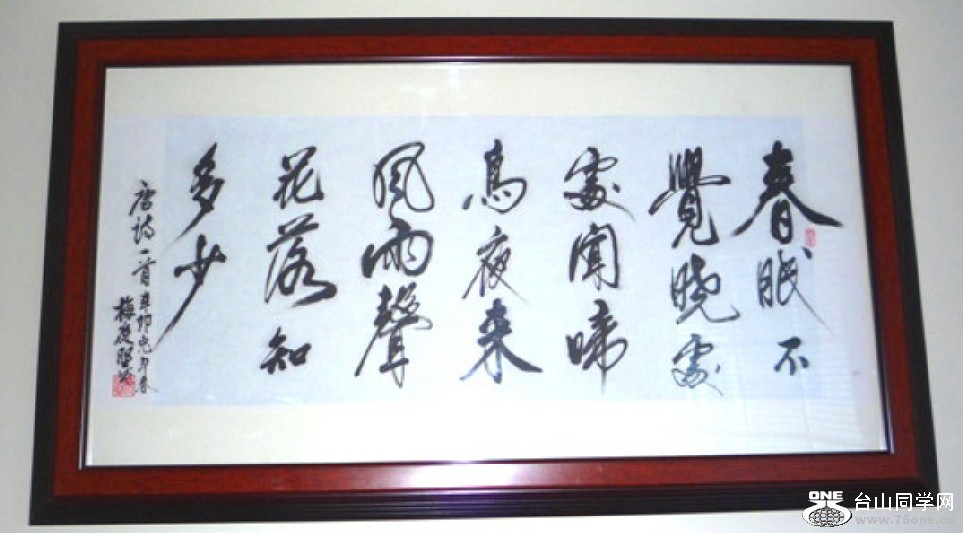 春眠不
覺曉處
處聞啼
鳥夜来
風雨聲
花落知
多少
唐詩一首辛卯兔年春
ONE
台山同学网
www.75one.cn